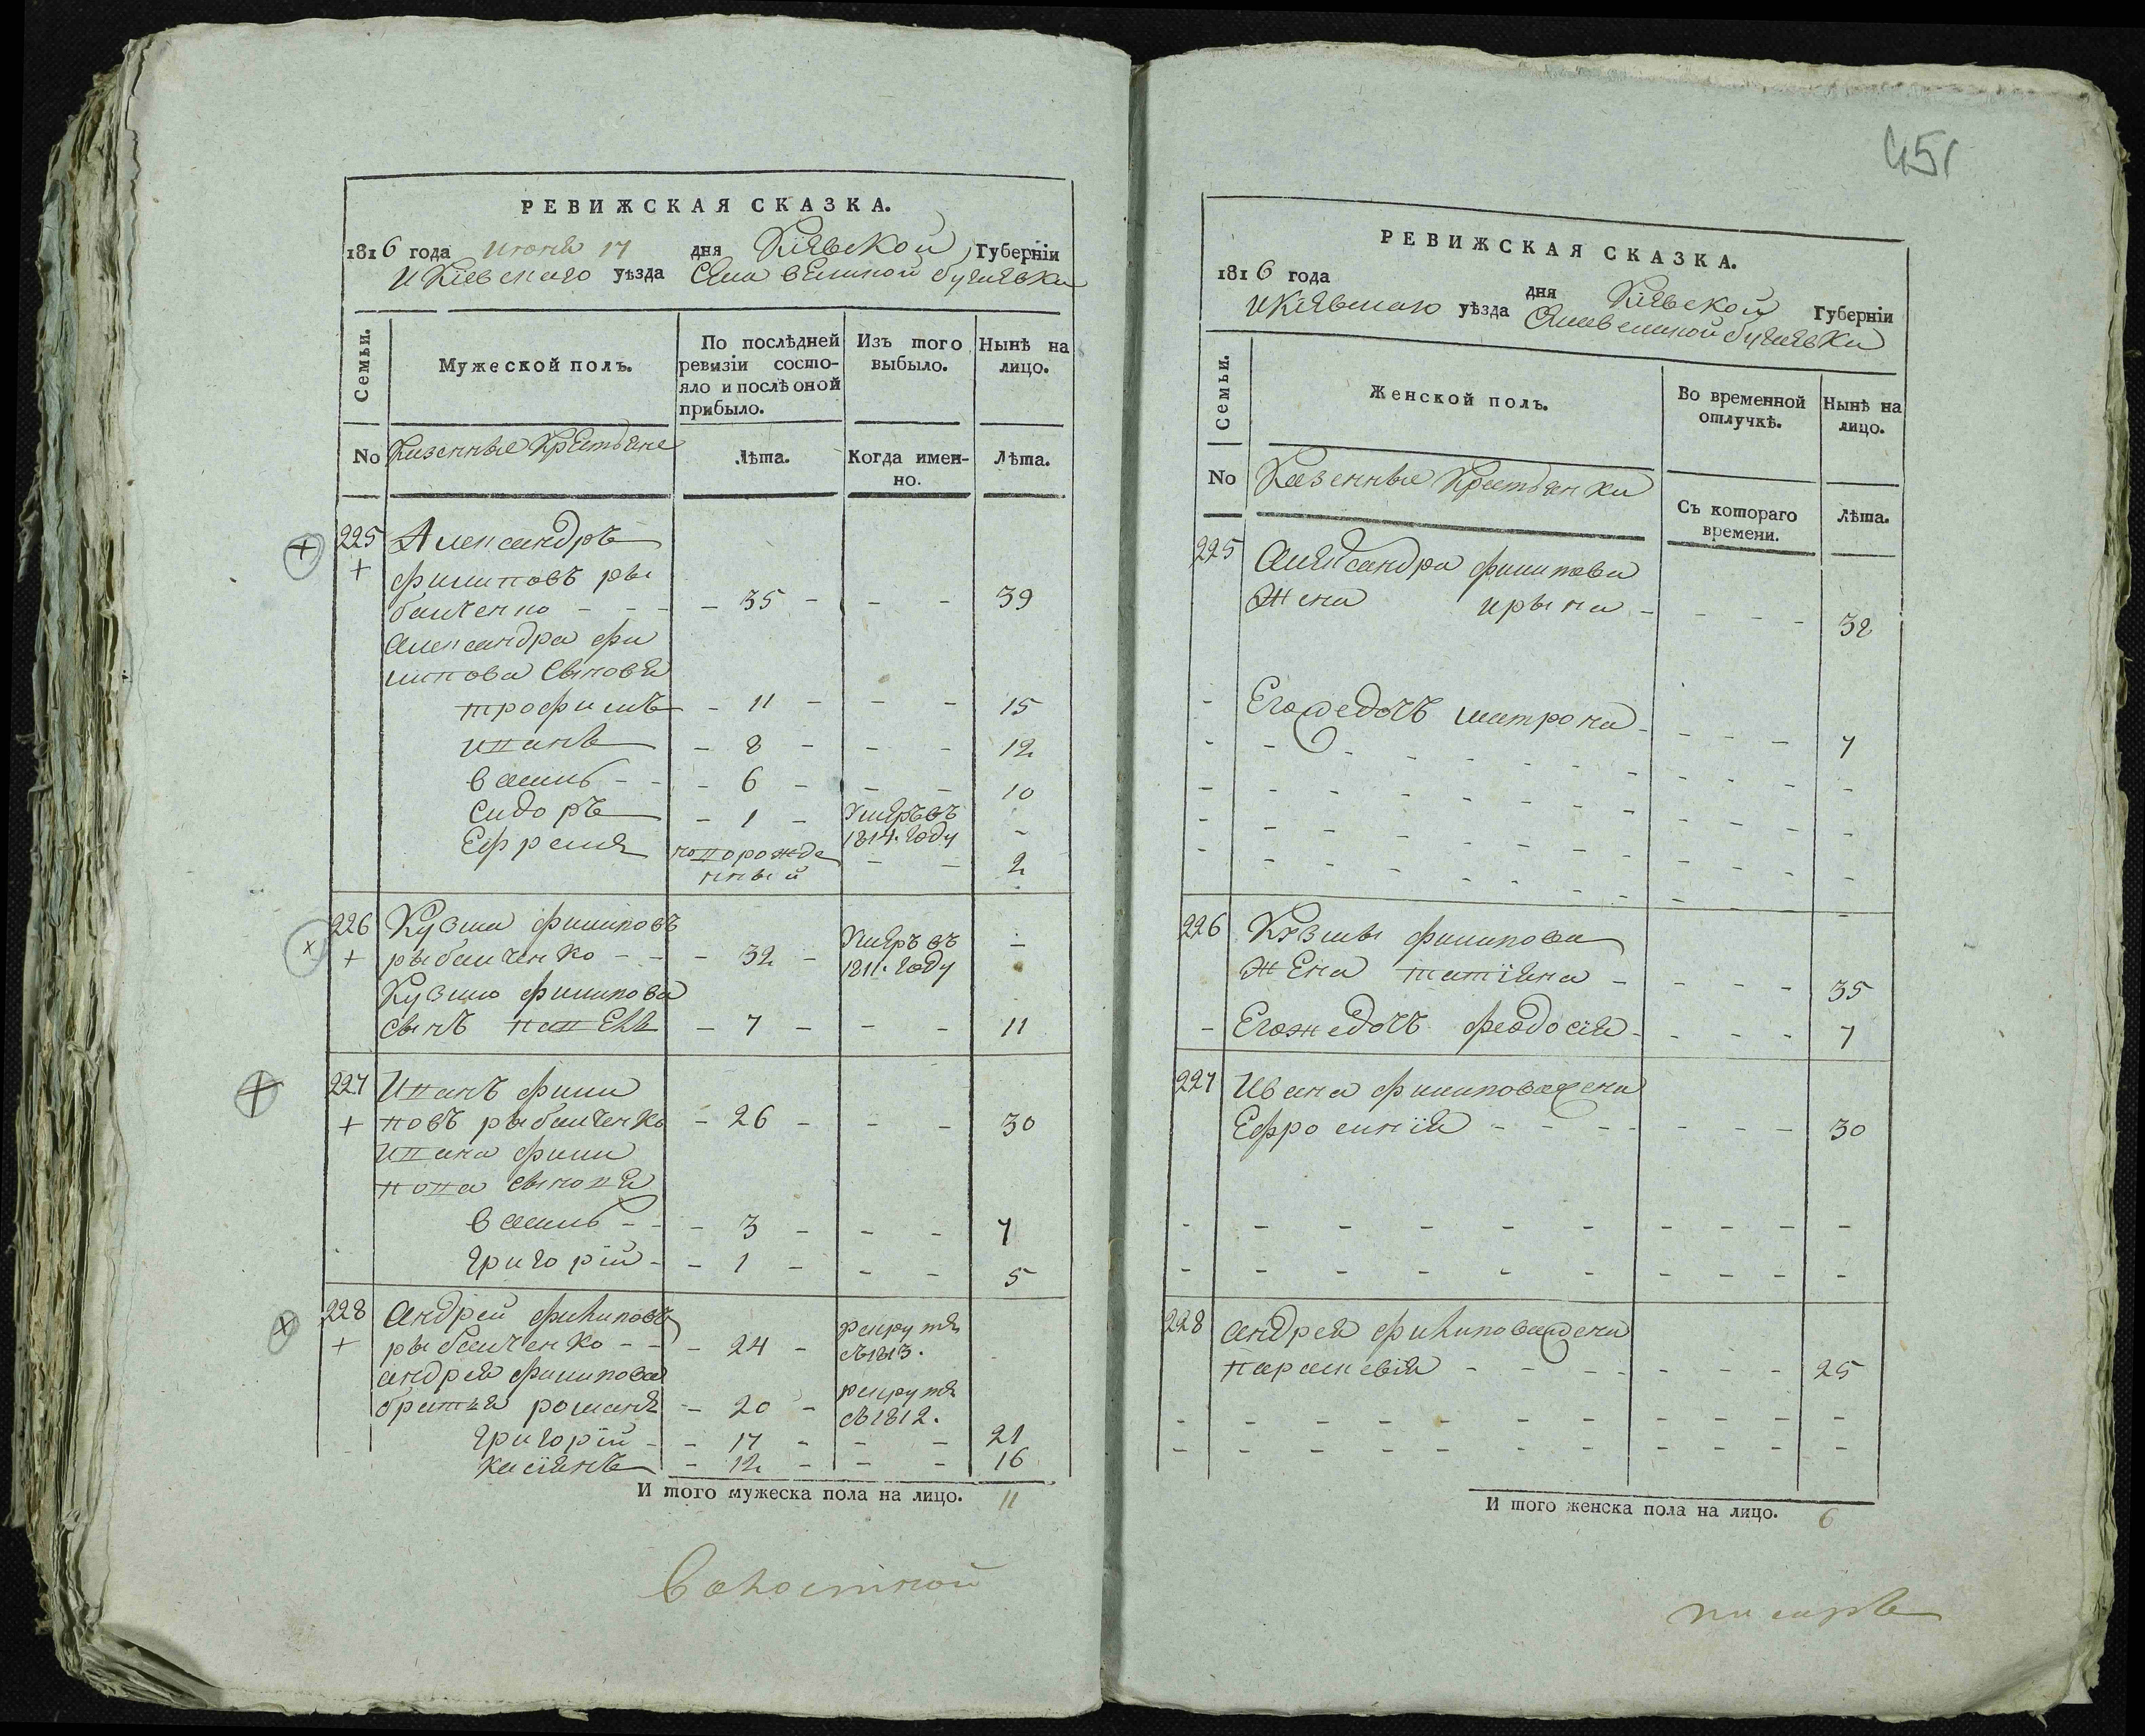 РЕВИЖСКАЯ СКАЗКА.
1816 года июня 17 дня Кіевской Губерніи
и Кіевскаго уѣзда Села великой бугаевки
Семьи.
Мужеской полъ.
По послѣдней ревизіи состо-
яло и послѣ оной
прибыло.
Изъ того
выбыло.
Нынѣ на
лицо.
No Казенные Крестьяне
Лѣта.
Когда имен-
но.
Лѣта.
225 Александръ
+ филиповъ ры
балченко - - - - 35 - - - 39
Александра фи
липова Сыновя
трофимъ - 11 - - - 15
иванъ - 8 - - - 12
василь - - - 6 - - - 10
Сидоръ - 1 - Умеръ въ
1814. году -
Ефремъ новорожде
нный - - 2
226 Кузма филиповъ
+ рыбалченко - - - 32 - Умеръ въ
1811. году -
Кузмы филипова
сынъ павелъ - 7 - - - 11
227 Иванъ фили
+ повъ рыбалченко - 26 - - - 30
Ивана фили
пова сыновя
василь - - - 3 - - - 7
григорій - - 1 - - - 5
228 андрей филиповъ
+ рыбалченко - - - 24 - рекруте
съ 1813.
андрея филипова
братья романъ - 20 - рекруте
съ 1812.
григорій - - 17 - - - 21
касіянъ - 12 - - - 16
И того мужеска пола на лицо. 11
волостной
451
РЕВИЖСКАЯ СКАЗКА.
1816 года дня Кіевской Губерніи
и Кіевскаго уѣзда Села великой бугаевки
Семьи.
Женской полъ.
Во временной
отлучкѣ.
Нынѣ на
лицо.
No Казенные Крестьянки
Съ котораго
времени.
Лѣта.
225 Александра филипова
Жена ирына - - - - 32
- Его ж дочъ матрона - - - - 7
226 Кузмы филипова
жена татіяна - - - - 35
- Его ж дочъ феодосія - - - - 7
227 Ивана филипова жена
Ефросинія - - - - - - - 30
228 андрея филипова жена
параскевія - - - - - - - 25
И того женска пола на лицо. 6
писаръ